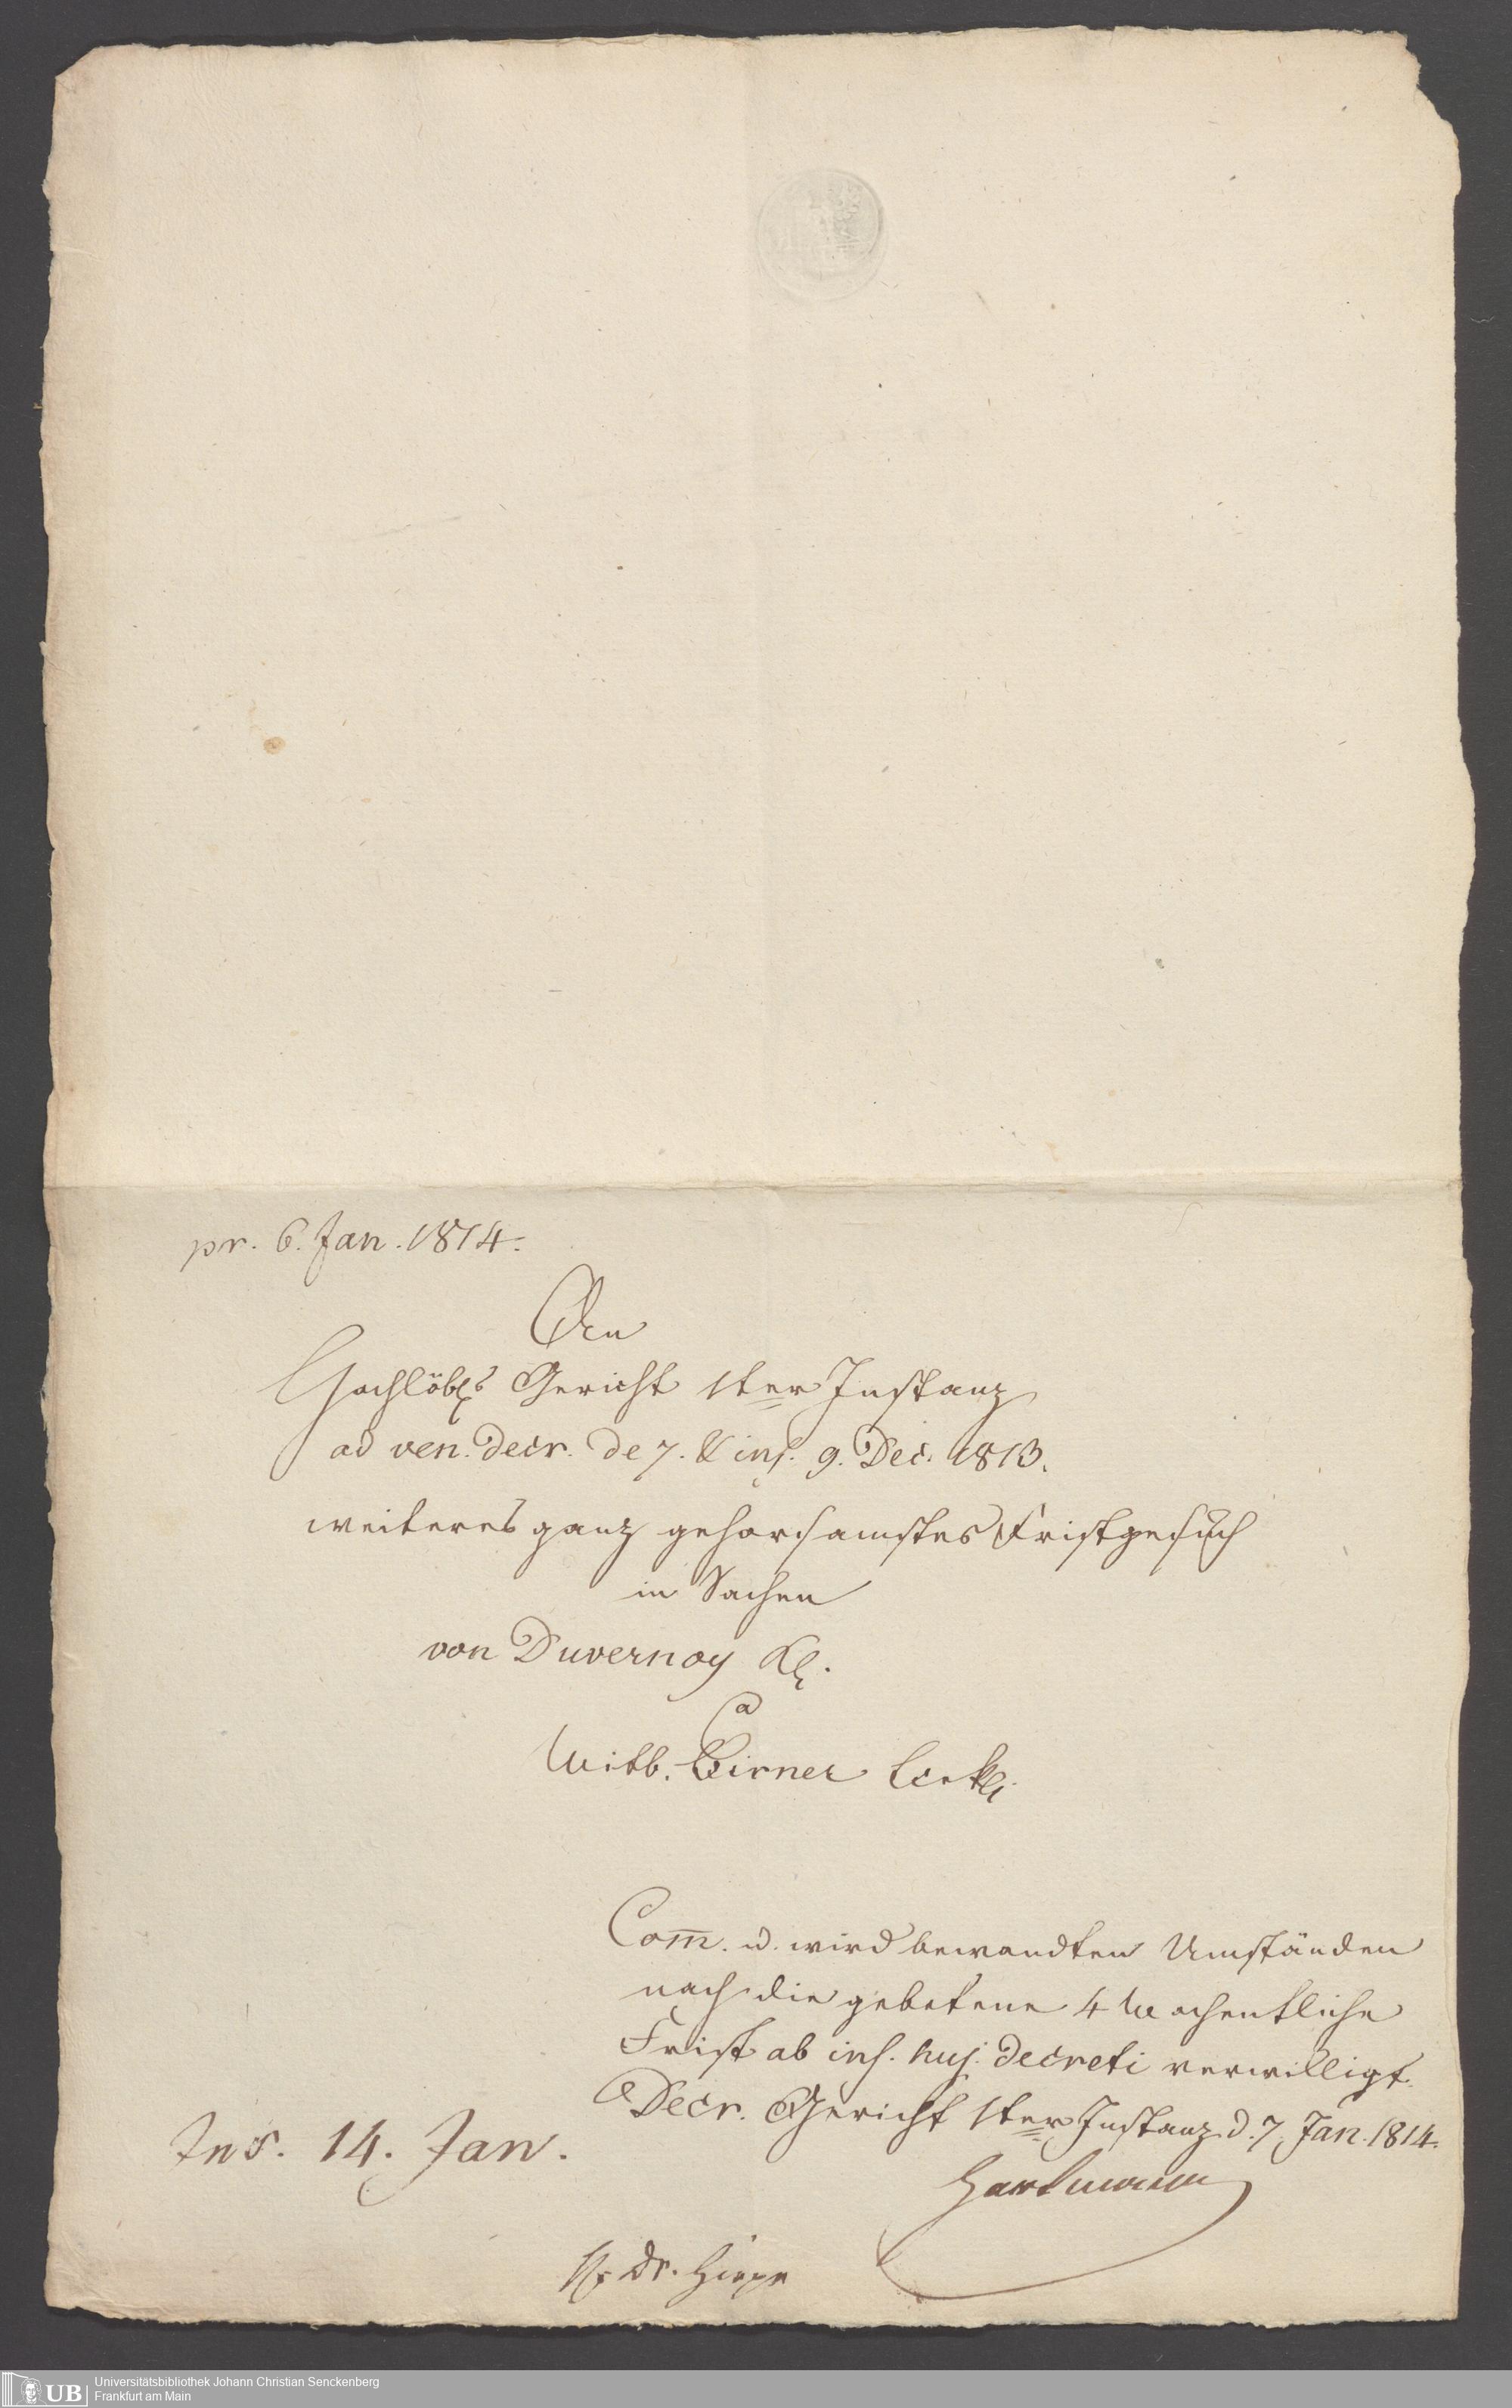 pr. 6. Jan. 1814.
An
Hochlöbl. Gericht 1ter Instanz
ad ven. decr. de 7. & ins. 9. Dec. 1813.
weiteres ganz gehorsamstes Fristgesuch
in Sachen
von Duvernoy Kl.
Ca
Wittb. Birner Bekl.
Com̅. u. wird bewandten Umständen
nach die gebetene 4 Wochentliche
Frist ab ins. huj. decreti verwilligt.
Decr. Gericht 1ter Instanz d. 7. Jan. 1814.
Ins. 14. Jan.
Hartmann
Dr.
UB
Universitätsbibliothek Johann Christian Senckenberg
Frankfurt am Main